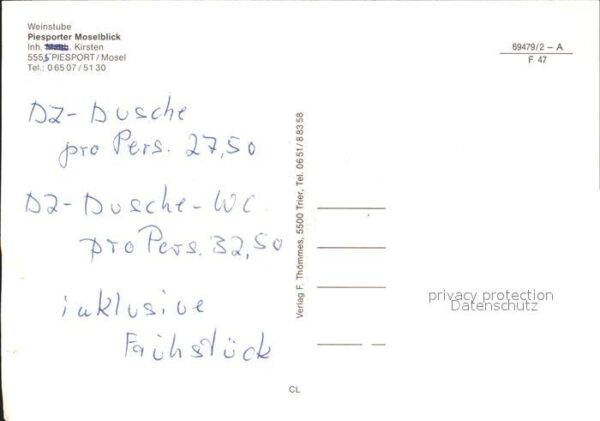 Weinstube
Piesporter Moselblick
Inh. Kirsten
5555 PIESPORT/Mosel
Tel.: 0 65 07 / 51 30
69479/2 – A
F 47
DZ-Dusche
pro Pers. 27,50
DZ-Dusche-WC
pro Pers. 32,50
inklusive
Frühstück
Verlag F. Thömmes, 5500 Trier, Tel. 06 51 / 8 83 58
privacy protection
Datenschutz
CL